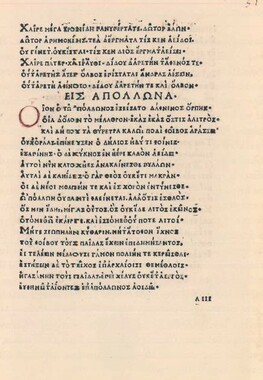 ΧΑΙΡΕ ΜΕΓΑ ΚΡΟΝΙΔΗ ΠΑΝΥΠΕΡΤΑΤΕ ΔΩΤΟΡ ΕΑΩΝ
ΔΩΤΟΡ ΑΠΗΜΟΝΙΗΣ ΤΕΑ ΔΕΡΓΜΑΤΑ ΤΙΣ ΚΕΝ ΑΕΙΔΟΙ
ΟΥ ΓΕΝΕΤ ΟΥΚΕΣΤΑΙ ΤΙΣ ΚΕΝ ΔΙΟΣ ΕΡΓΜΑΤ ΑΕΙΣΕΙ
ΧΑΙΡΕ ΠΑΤΕΡ ΧΑΙΡ ΑΥΘΙ ΔΙΔΟΥ ΔΑΡΕΤΗΝ ΤΑΦΕΝΟΣ ΤΕ
ΟΥΤΑΡΕΤΗΣ ΑΤΕΡ ΟΛΒΟΣ ΕΠΙΣΤΑΤΑΙ ΑΝΔΡΑΣ ΑΕΞΕΙΝ
ΟΥΤΑΡΕΤΗ ΑΦΕΝΟΙΟ ΔΙΔΟΥ ΔΑΡΕΤΗΝ ΤΕ ΚΑΙ ΟΛΒΟΝ
ΕΙΣ ΑΠΟΛΛΩΝΑ
ΟΙΟΝ Ο ΤΩ ΠΟΛΛΩΝΟΣ ΕΣΕΙΣΑΤΟ ΔΑΦΝΙΝΟΣ ΟΡΠΗΞ
ΟΙΑ ΔΟΛΟΝ ΤΟ ΜΕΛΑΘΡΟΝ ΕΚΑΣ ΕΚΑΣ ΟΣΤΙΣ ΑΛΙΤΡΟΣ
ΚΑΙ ΔΗ ΠΟΥ ΤΑ ΘΥΡΕΤΡΑ ΚΑΛΩ ΠΟΔΙ ΦΟΙΒΟΣ ΑΡΑΣΣΕΙ
ΟΥΧ ΟΡΑΑΣ ΕΠΕΝΕΥΣΕΝ Ο ΔΗΛΙΟΣ ΗΔΥ ΤΙ ΦΟΙΝΙΞ
ΕΞΑΠΙΝΗΣ Ο ΔΕ ΚΥΚΝΟΣ ΕΝ ΗΕΡΙ ΚΑΛΟΝ ΑΕΙΔΕΙ
ΑΥΤΟΙ ΝΥΝ ΚΑΤΟΧΗΕΣ ΑΝΑΚΛΙΝΕΣΘΕ ΠΥΛΑΩΝ
ΑΥΤΑΙ ΔΕ ΚΛΗΙΔΕΣ Ο ΓΑΡ ΘΕΟΣ ΟΥΚΕΤΙ ΜΑΚΡΑΝ
ΟΙ ΔΕ ΝΕΟΙ ΜΟΛΠΗΝ ΤΕ ΚΑΙ ΕΣ ΧΟΡΟΝ ΕΝΤΥΝΕΣΘΕ
Ω ΠΟΛΛΩΝ ΟΥ ΠΑΝΤΙ ΦΑΕΙΝΕΤΑΙ ΑΛΛ ΟΤΙΣ ΕΣΘΛΟΣ
ΟΣ ΜΙΝ ΙΔΗ ΜΕΓΑΣ ΟΥΤΟΣ ΟΣ ΟΥΚ ΙΔΕ ΛΙΤΟΣ ΕΚΕΙΝΟΣ
ΟΨΟΜΕΘ Ω ΕΚΑΕΡΓΕ ΚΑΙ ΕΣΣΟΜΕΘ ΟΥΠΟΤΕ ΛΙΤΟΙ
ΜΗΤΕ ΣΙΩΠΗΛΗΝ ΚΙΘΑΡΙΝ ΜΗΤ ΑΨΟΦΟΝ ΙΧΝΟΣ
ΤΟΥ ΦΟΙΒΟΥ ΤΟΥΣ ΠΑΙΔΑΣ ΕΧΕΙΝ ΕΠΙΔΗΜΗΣΑΝΤΟΣ
ΕΙ ΤΕΛΕΕΙΝ ΜΕΛΛΟΥΣΙ ΓΑΜΟΝ ΠΟΛΙΗΝ ΤΕ ΚΕΡΕΙΣΘΑΙ
ΕΣΤΗΞΕΙΝ ΔΕ ΤΟ ΤΕΙΧΟΣ ΕΠ ΑΡΧΑΙΟΙΣΙ ΘΕΜΕΘΛΟΙΣ
ΗΓΑΣΑΜΗΝ ΤΟΥΣ ΠΑΙΔΑΣ ΕΠΕΙ ΧΕΛΥΣ ΟΥΚΕΤ ΑΕΡΓΟΣ
ΕΥΦΗΜΕΙΤ ΑΙΟΝΤΕΣ ΕΠ ΑΠΟΛΛΩΝΟΣ ΑΟΙΔΗ
Α ΙΙΙ